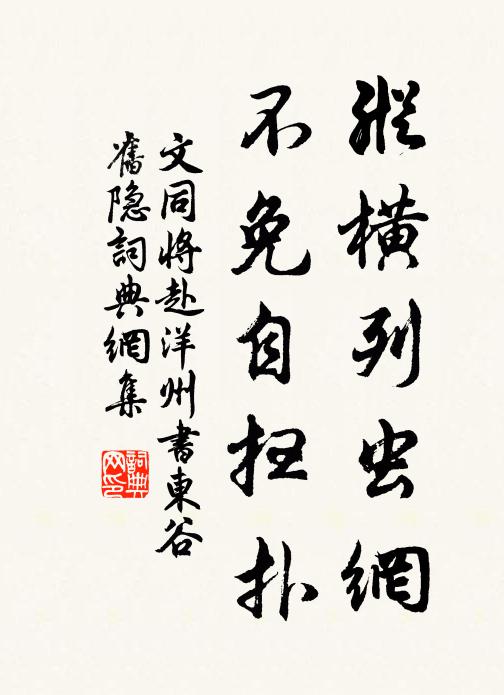 縱橫列虫網
不免自扫扑
文同将赴洋州書東谷
舊隐詞典網集
詞典网印